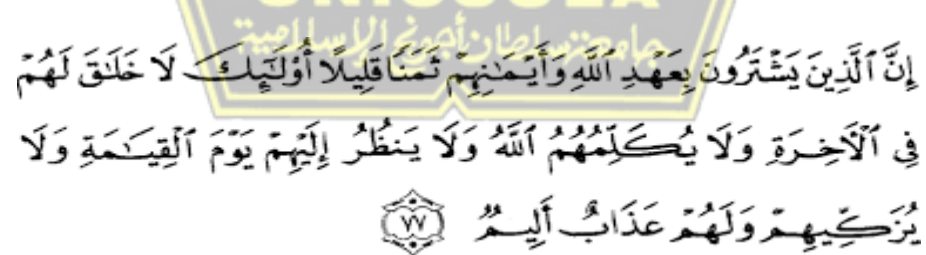 UNISSULA
جامعة سلطان أجونج الإسلامية
إِنَّ ٱلَّذِينَ يَشْتَرُونَ بِعَهْدِ ٱللَّهِ وَأَيْمَـٰنِهِمْ ثَمَنًا قَلِيلًا أُو۟لَـٰٓئِكَ لَا خَلَـٰقَ لَهُمْ
فِى ٱلْأَخِرَةِ وَلَا يُكَلِّمُهُمُ ٱللَّهُ وَلَا يَنظُرُ إِلَيْهِمْ يَوْمَ ٱلْقِيَـٰمَةِ وَلَا
يُزَكِّيهِمْ وَلَهُمْ عَذَابٌ أَلِيمٌ ﴿٧٧﴾